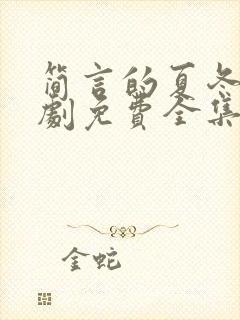 简言的夏冬
劇免费全集
金蛇